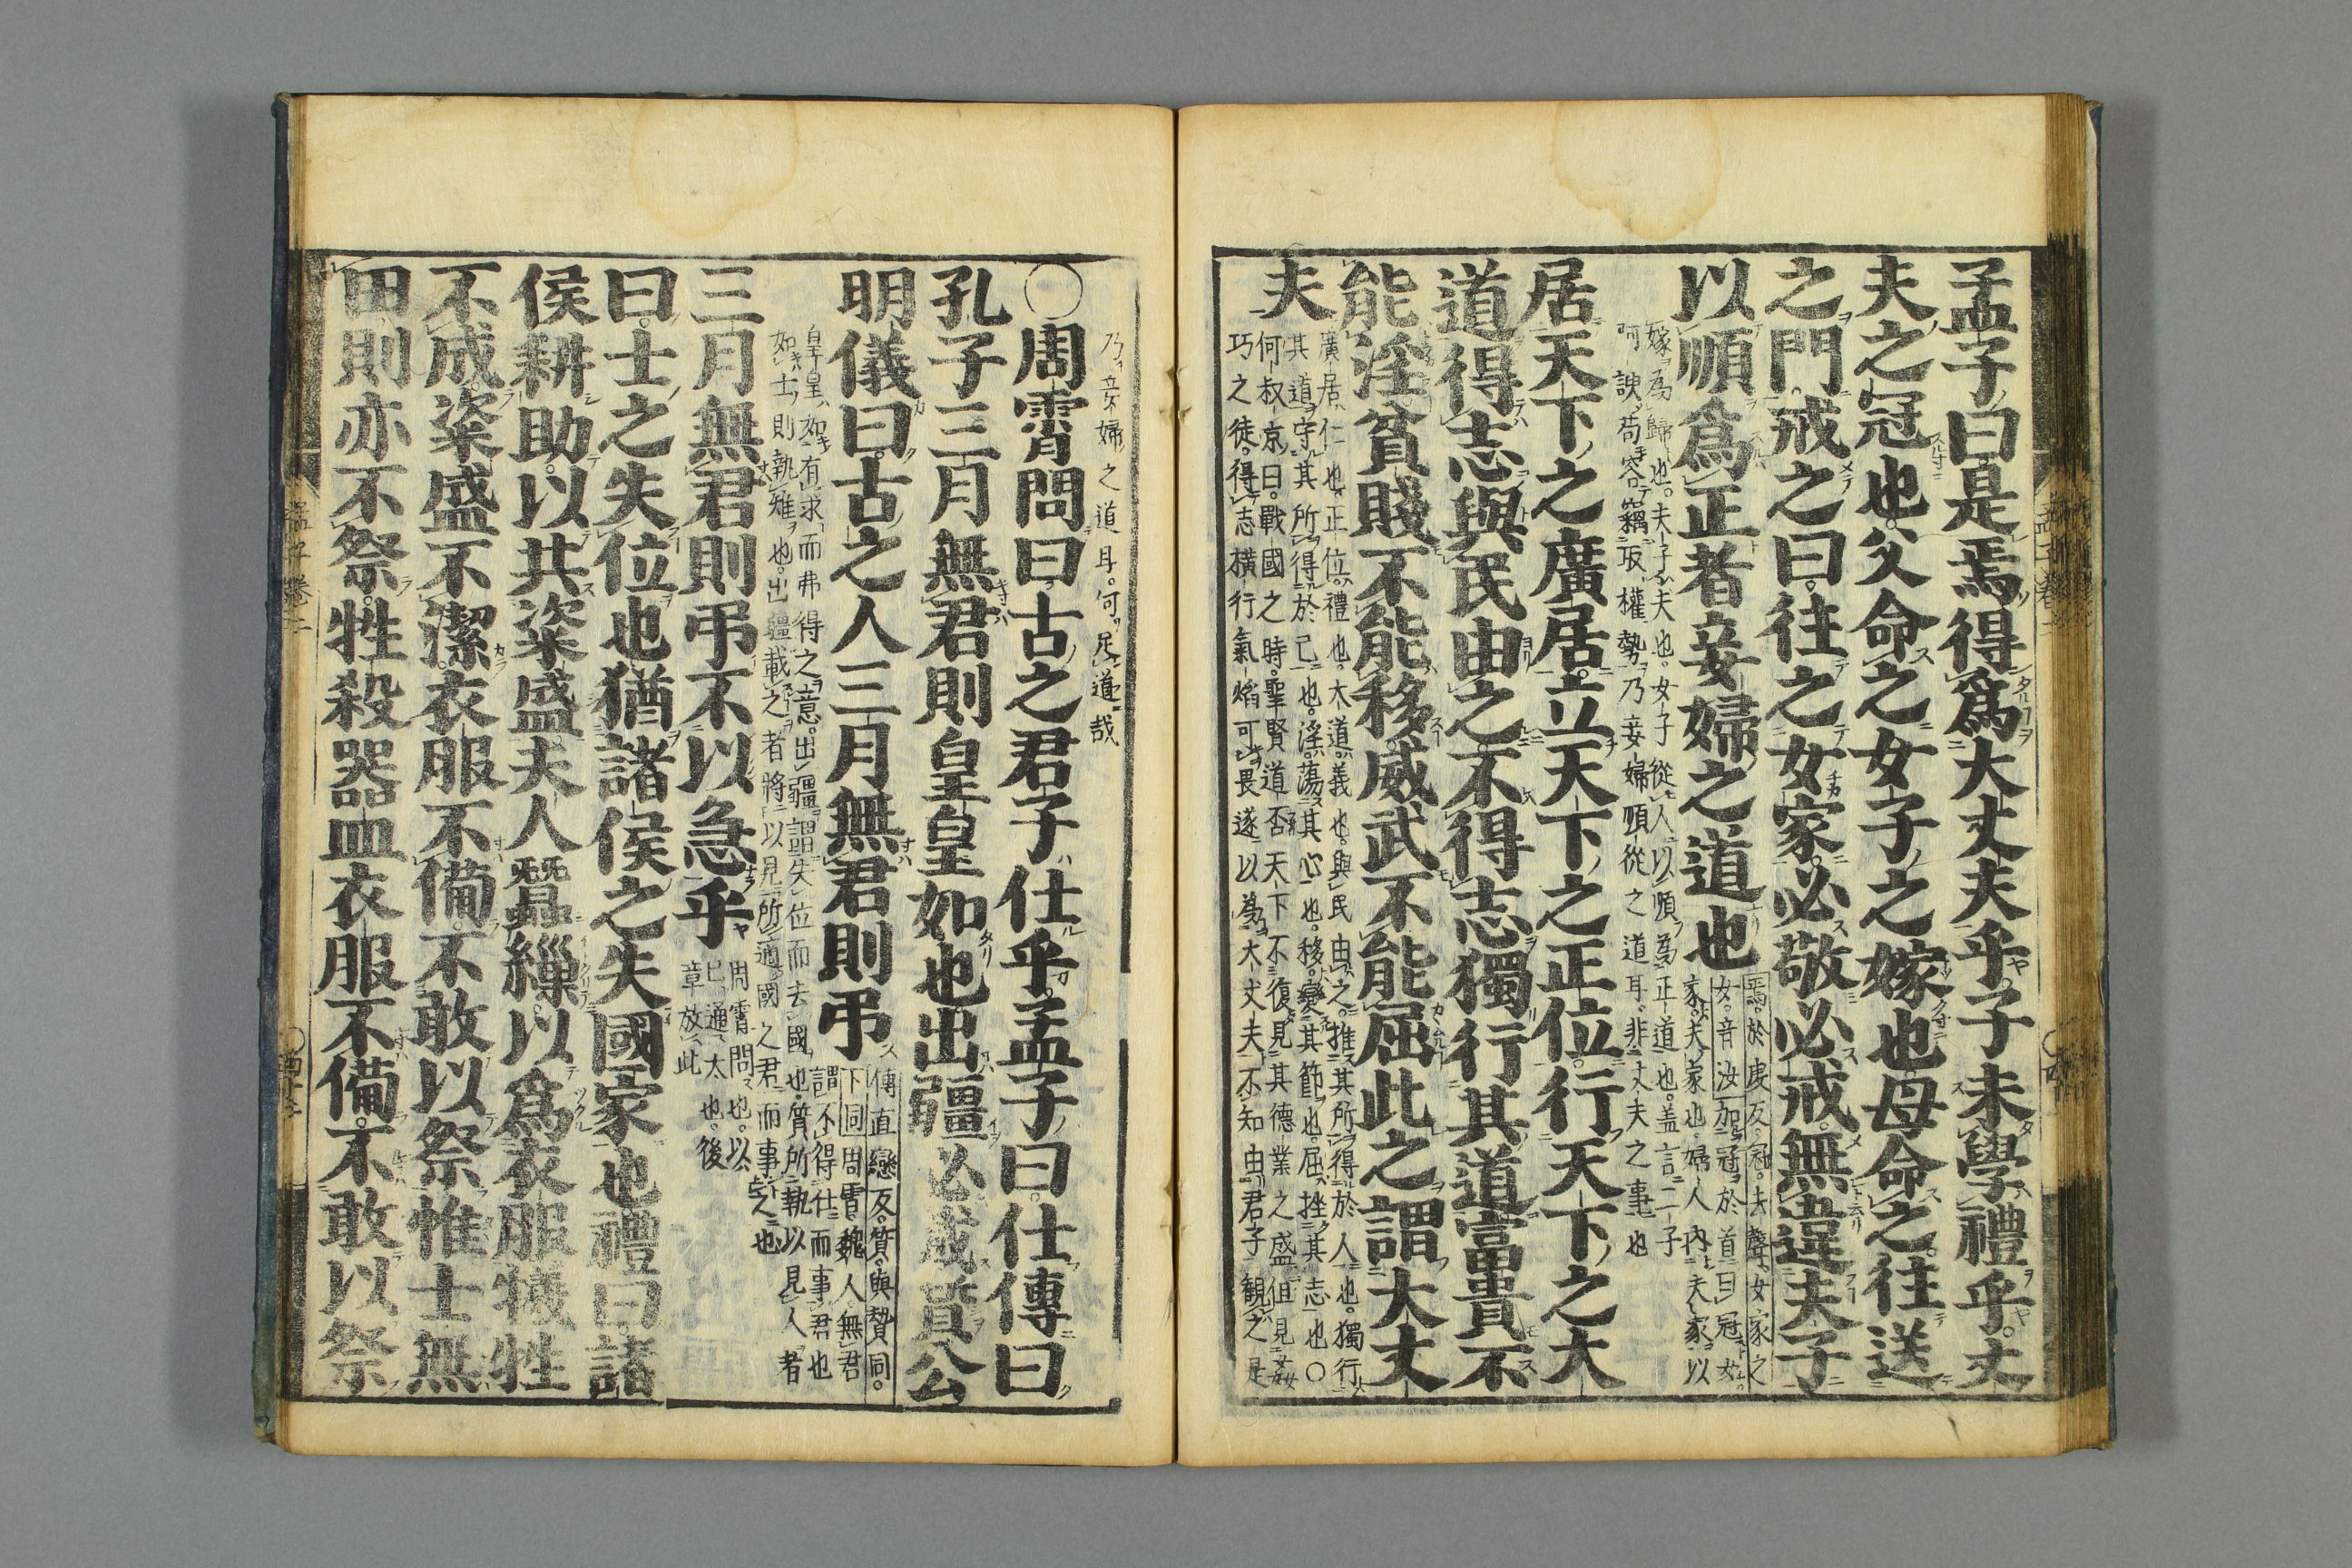 孟子曰是焉得爲大丈夫乎子未學禮乎丈
夫之冠也父命之女子之嫁也母命之往送
之門戒之曰往之女家必敬必戒無違夫子
以順爲正者妾婦之道也
焉於虔反冠去聲女家之
女音汝加冠於首曰冠女
家夫家也婦人內夫家以
嫁爲歸也夫子夫也女子從人以順爲正道也盖言二子
阿諛苟容竊取權勢乃妾婦順從之道耳非丈夫之事也
居天下之廣居立天下之正位行天下之大
道得志與民由之不得志獨行其道富貴不
能淫貧賤不能移威武不能屈此之謂大丈
夫
廣居仁也正位禮也大道義也與民由之推其所得於人也獨行
其道守其所得於己也淫蕩其心也移變其節也屈挫其志也○
何叔京曰戰國之時聖賢道否天下不復見其德業之盛但見姦
巧之徒得志橫行氣焰可畏遂以爲大丈夫不知由君子觀之是
乃妾婦之道耳何足道哉
○周霄問曰古之君子仕乎孟子曰仕傳曰
孔子三月無君則皇皇如也出疆必載質公
明儀曰古之人三月無君則弔
傳直戀反質與贄同
下同周霄魏人無君
謂不得仕而事君也
皇皇如有求而弗得之意出疆謂失位而去國也質所執以見人者
如士則執雉也出疆載之者將以見所適國之君而事之也
三月無君則弔不以急乎
周霄問也以
已通太也後
章放此
曰士之失位也猶諸侯之失國家也禮曰諸
侯耕助以共粢盛夫人蠶繅以爲衣服犧牲
不成粢盛不潔衣服不備不敢以祭惟士無
田則亦不祭牲殺器皿衣服不備不敢以祭
孟子卷三